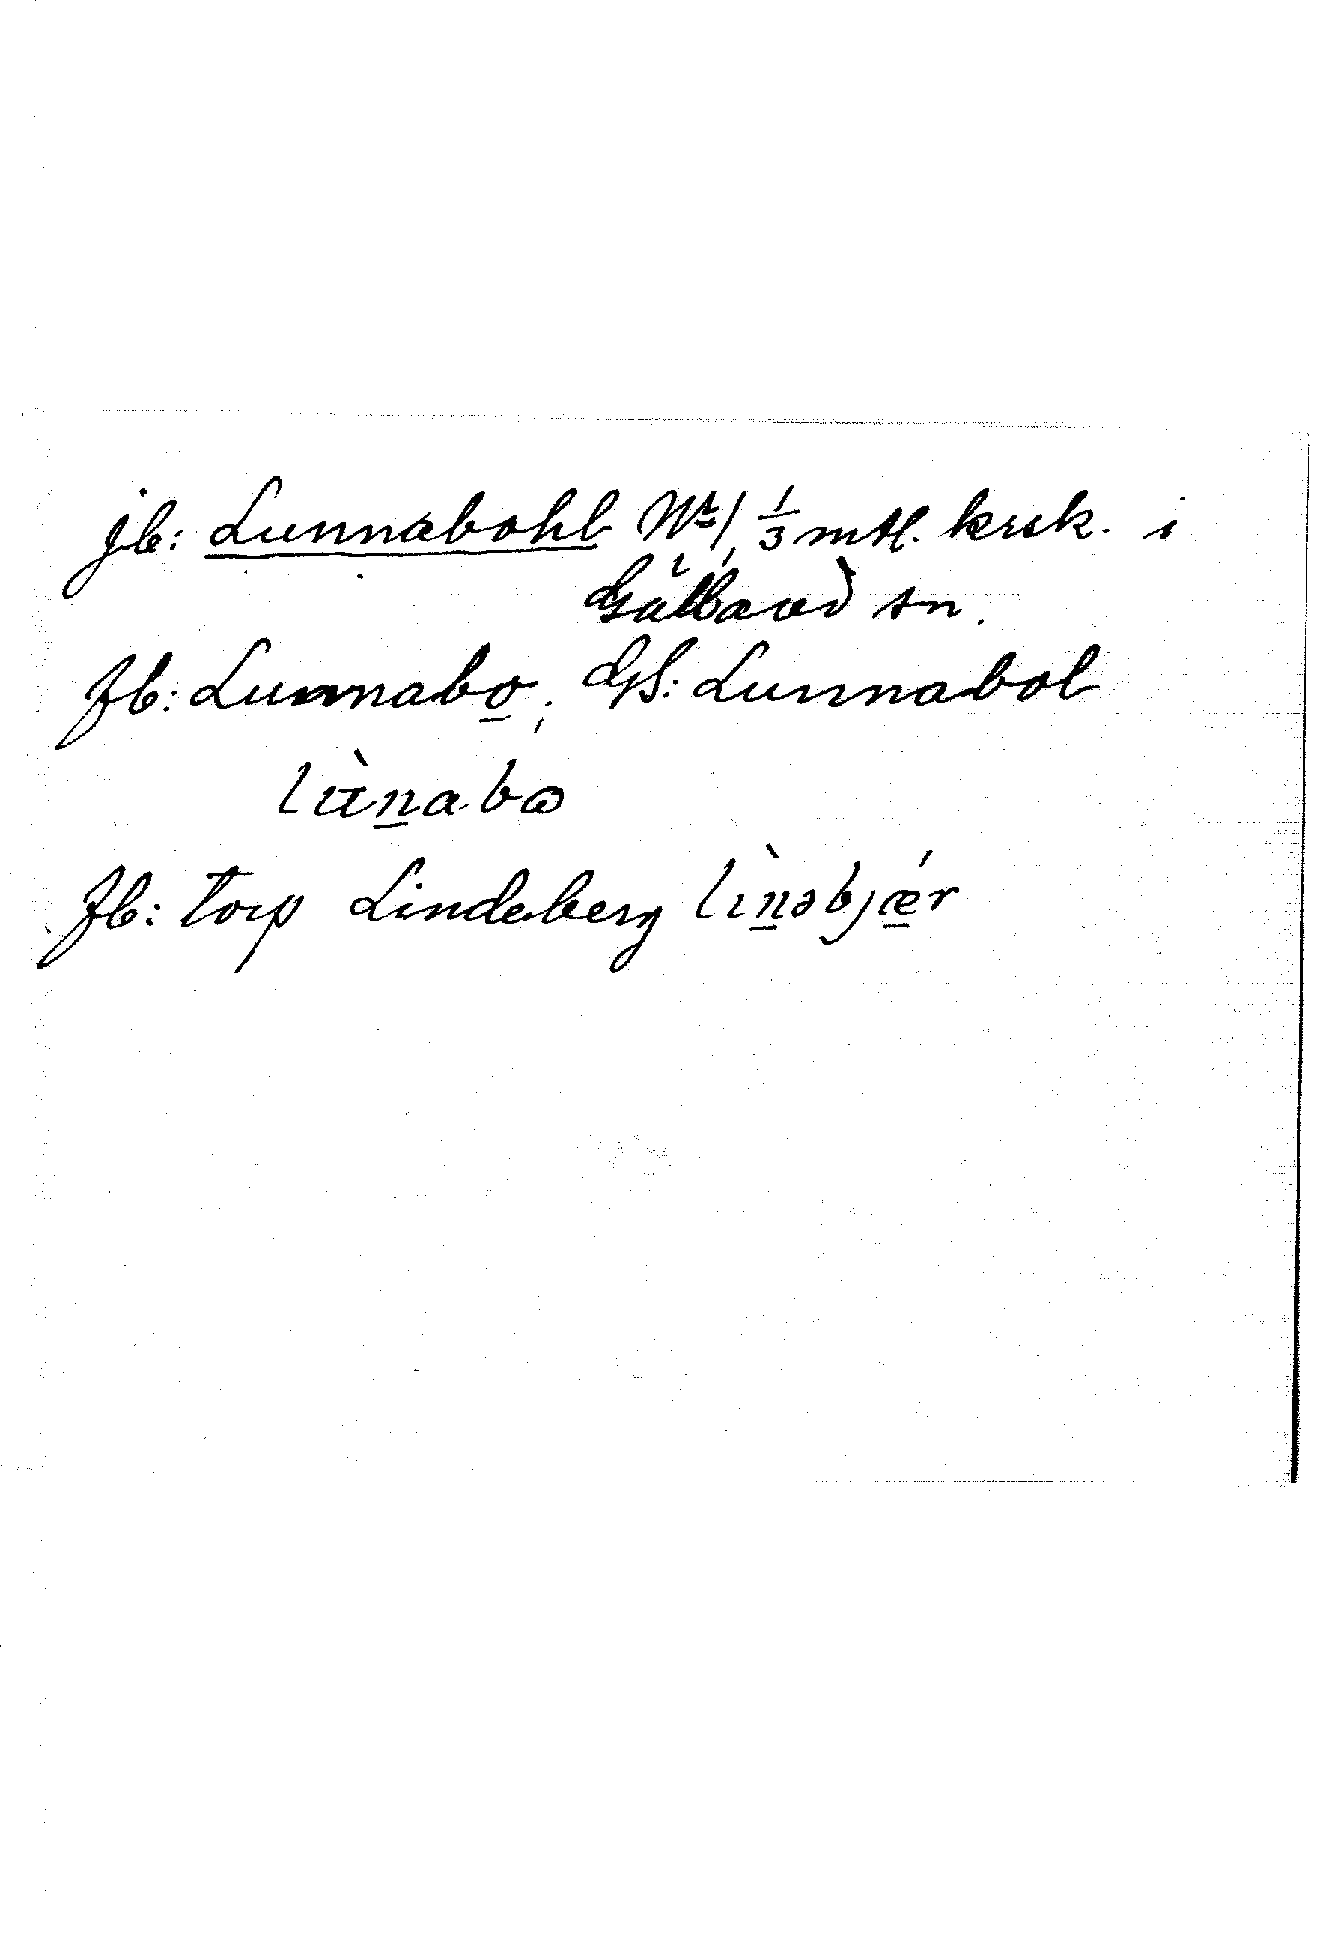 jb: Lunnabohl No 1, 1/3 mtl. krsk. i
Gällared sn.
fb: Lunnabo; GS: Lunnabol
lùnabo
fb: torp Lindeberg lìnəbjǽr